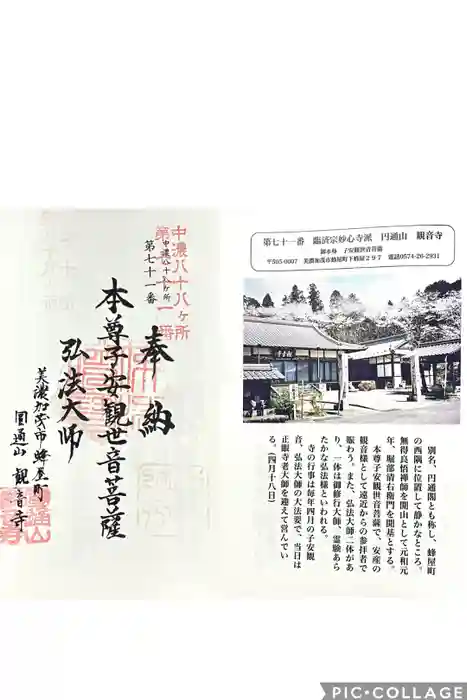 中濃八十八ヶ所
第七十一番
中濃八十八ヶ所
第七十一番
奉納
本尊子安観世音菩薩
弘法大師
美濃加茂市蜂屋町
圓通山 観音寺
第七十一番 臨済宗妙心寺派 円通山 観音寺
御本尊 子安観世音菩薩
〒505-0007 美濃加茂市蜂屋町下蜂屋297 電話0574-26-2931
別名、円通閣とも称し、蜂屋町
の西隅に位置して静かなところ。
無得良悟禅師を開山として元和元
年、堀部清右衛門を開基とする。
本尊子安観世音菩薩で、安産の
観音様として遠近からの参拝者で
賑わう。また、弘法大師二体があ
り、一体は御修行大師、霊験あら
たかな弘法様といわれる。
寺の行事は毎年四月の子安観
音、弘法大師の大法要で、当日は
正眼寺老大師を迎えて営んでい
る。(四月十八日)
PIC・COLLAGE